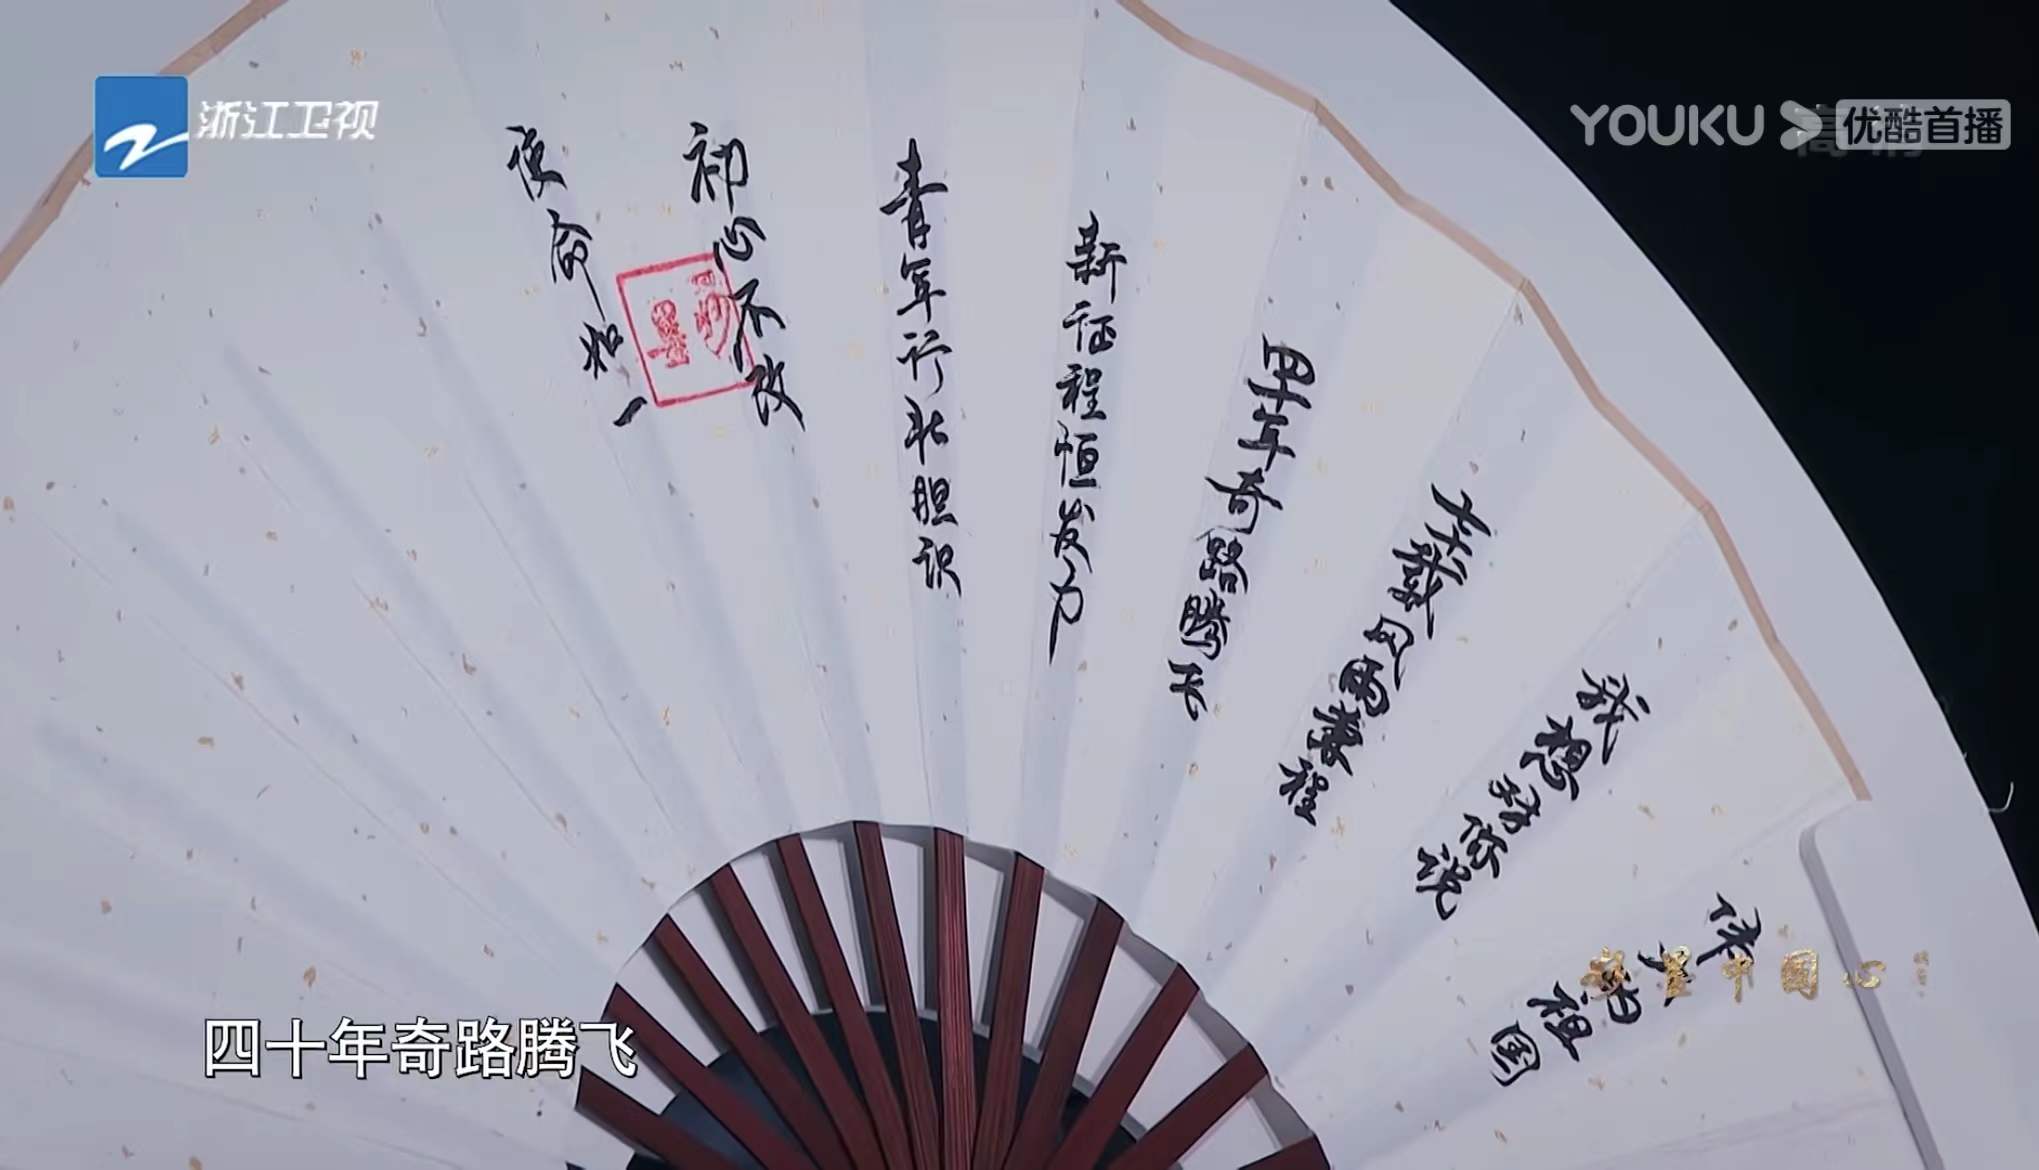 浙江卫视
YOUKU 优酷首播
伟大的祖国
我想对你说
七十载风雨兼程
四十年奇路腾飞
新征程恒发力
青年行北胆识
初心不改
使命如一
中国心
四十年奇路腾飞